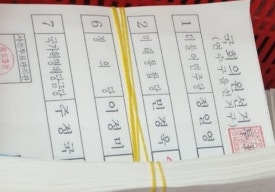 국회의원선거
(연수구을선거구)
1 더불어민주당 정일영
2 미래통합당 민경욱
6 정의당 이정미
7 국가혁명배당금당 주정국